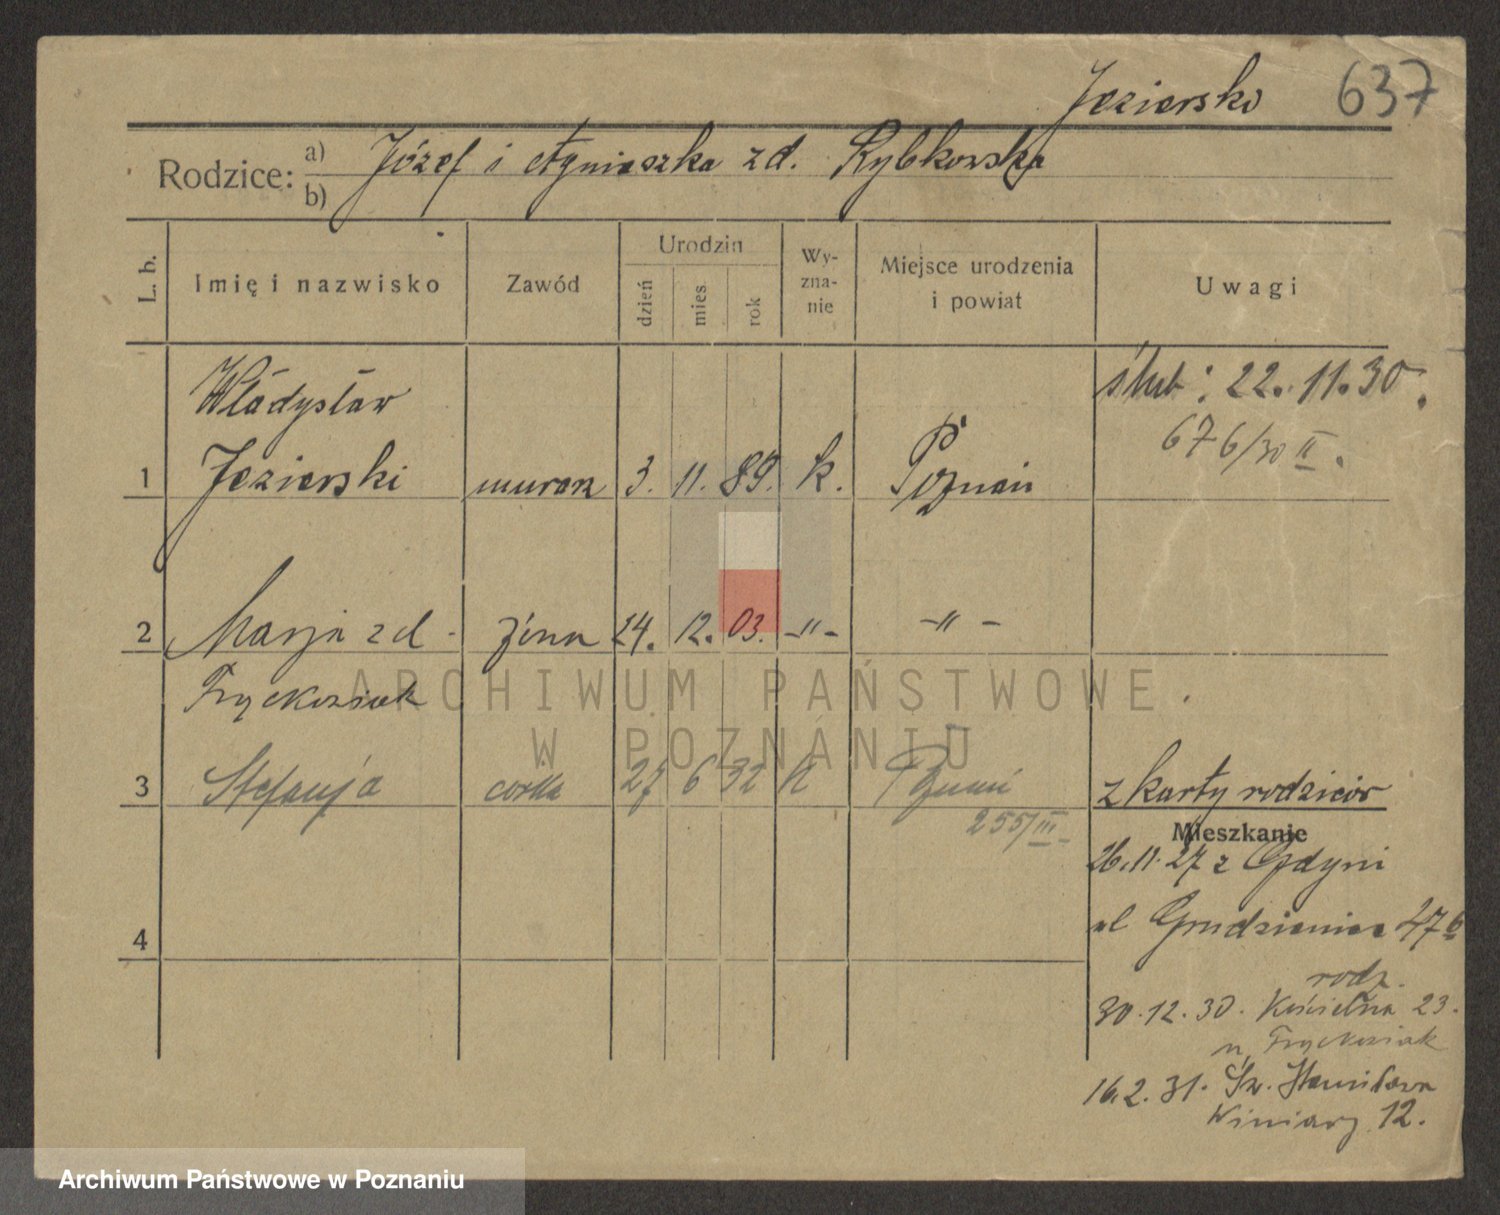 637
Rodzice: a) Józef i Agnieszka zd. Rybkowska
b)
L. b.
Imię i nazwisko
Zawód
Urodzin
dzień
mies.
rok
Wy-
zna-
nie
Miejsce urodzenia
i powiat
Uwagi
Władysław
1 Jezierski murarz 3. 11. 89. k. Poznań
ślub: 22. 11. 30.
676/30 II.
2 Marja zd. żona 24. 12. 03. -"- -"-
3 Stefanja córka 27 6 32 k Poznań
255/III
z karty rodziców
Mieszkanie
26.11.27 z Gdyni
ul Grudzieniec 47
4
rodz.
30.12.30. Kościelna 23.
16.2.31. Św. Stanisława
Winiary 12.
ARCHIWUM PAŃSTWOWE
W POZNANIU
Archiwum Państwowe w Poznaniu